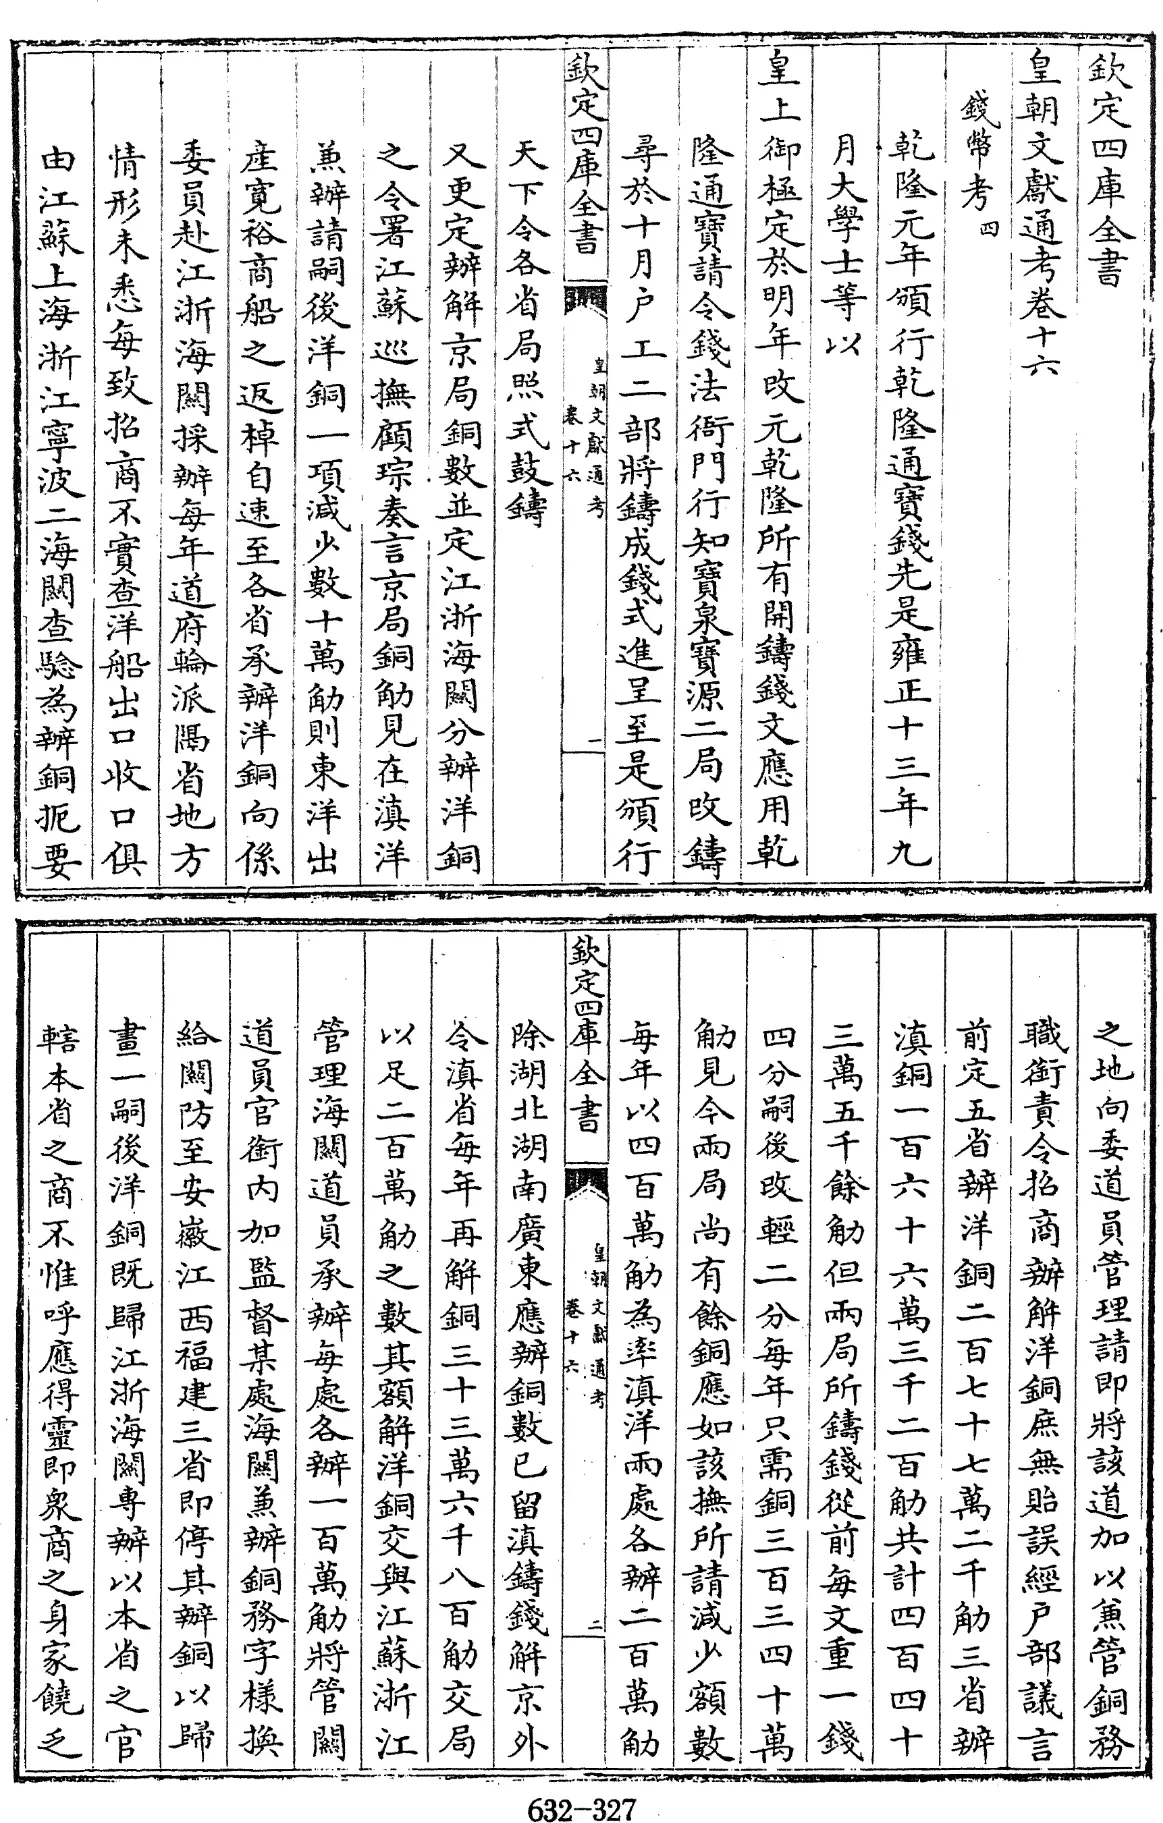 欽定四庫全書
皇朝文獻通考卷十六
錢幣考四
乾隆元年頒行乾隆通寶錢先是雍正十三年九
月大學士等以
皇上御極定於明年改元乾隆所有開鑄錢文應用乾
隆通寶請令錢法衙門行知寶泉寶源二局改鑄
尋於十月户工二部將鑄成錢式進呈至是頒行
欽定四庫全書
皇朝文獻通考
卷十六
一
天下令各省局照式鼓鑄
又更定辦解京局銅數並定江浙海關分辦洋銅
之令署江蘇巡撫顧琮奏言京局銅觔見在滇洋
兼辦請嗣後洋銅一項減少數十萬觔則東洋出
產寛裕商船之返棹自速至各省承辦洋銅向係
委員赴江浙海關採辦每年道府輪派隔省地方
情形未悉每致招商不實查洋船出口收口俱
由江蘇上海浙江寧波二海關查驗為辦銅扼要
之地向委道員管理請即將該道加以兼管銅務
職銜責令招商辦解洋銅庶無貽誤經户部議言
前定五省辦洋銅二百七十七萬二千觔三省辦
滇銅一百六十六萬三千二百觔共計四百四十
三萬五千餘觔但兩局所鑄錢從前每文重一錢
四分嗣後改輕二分每年只需銅三百三四十萬
觔見今兩局尚有餘銅應如該撫所請減少額數
每年以四百萬觔為率滇洋兩處各辦二百萬觔
欽定四庫全書
皇朝文獻通考
卷十六
二
除湖北湖南廣東應辦銅數已留滇鑄錢解京外
令滇省每年再解銅三十三萬六千八百觔交局
以足二百萬觔之數其額解洋銅交與江蘇浙江
管理海關道員承辦每處各辦一百萬觔將管關
道員官銜內加監督某處海關兼辦銅務字樣換
給關防至安徽江西福建三省即停其辦銅以歸
畫一嗣後洋銅既歸江浙海關專辦以本省之官
轄本省之商不惟呼應得靈即衆商之身家饒乏
632-327